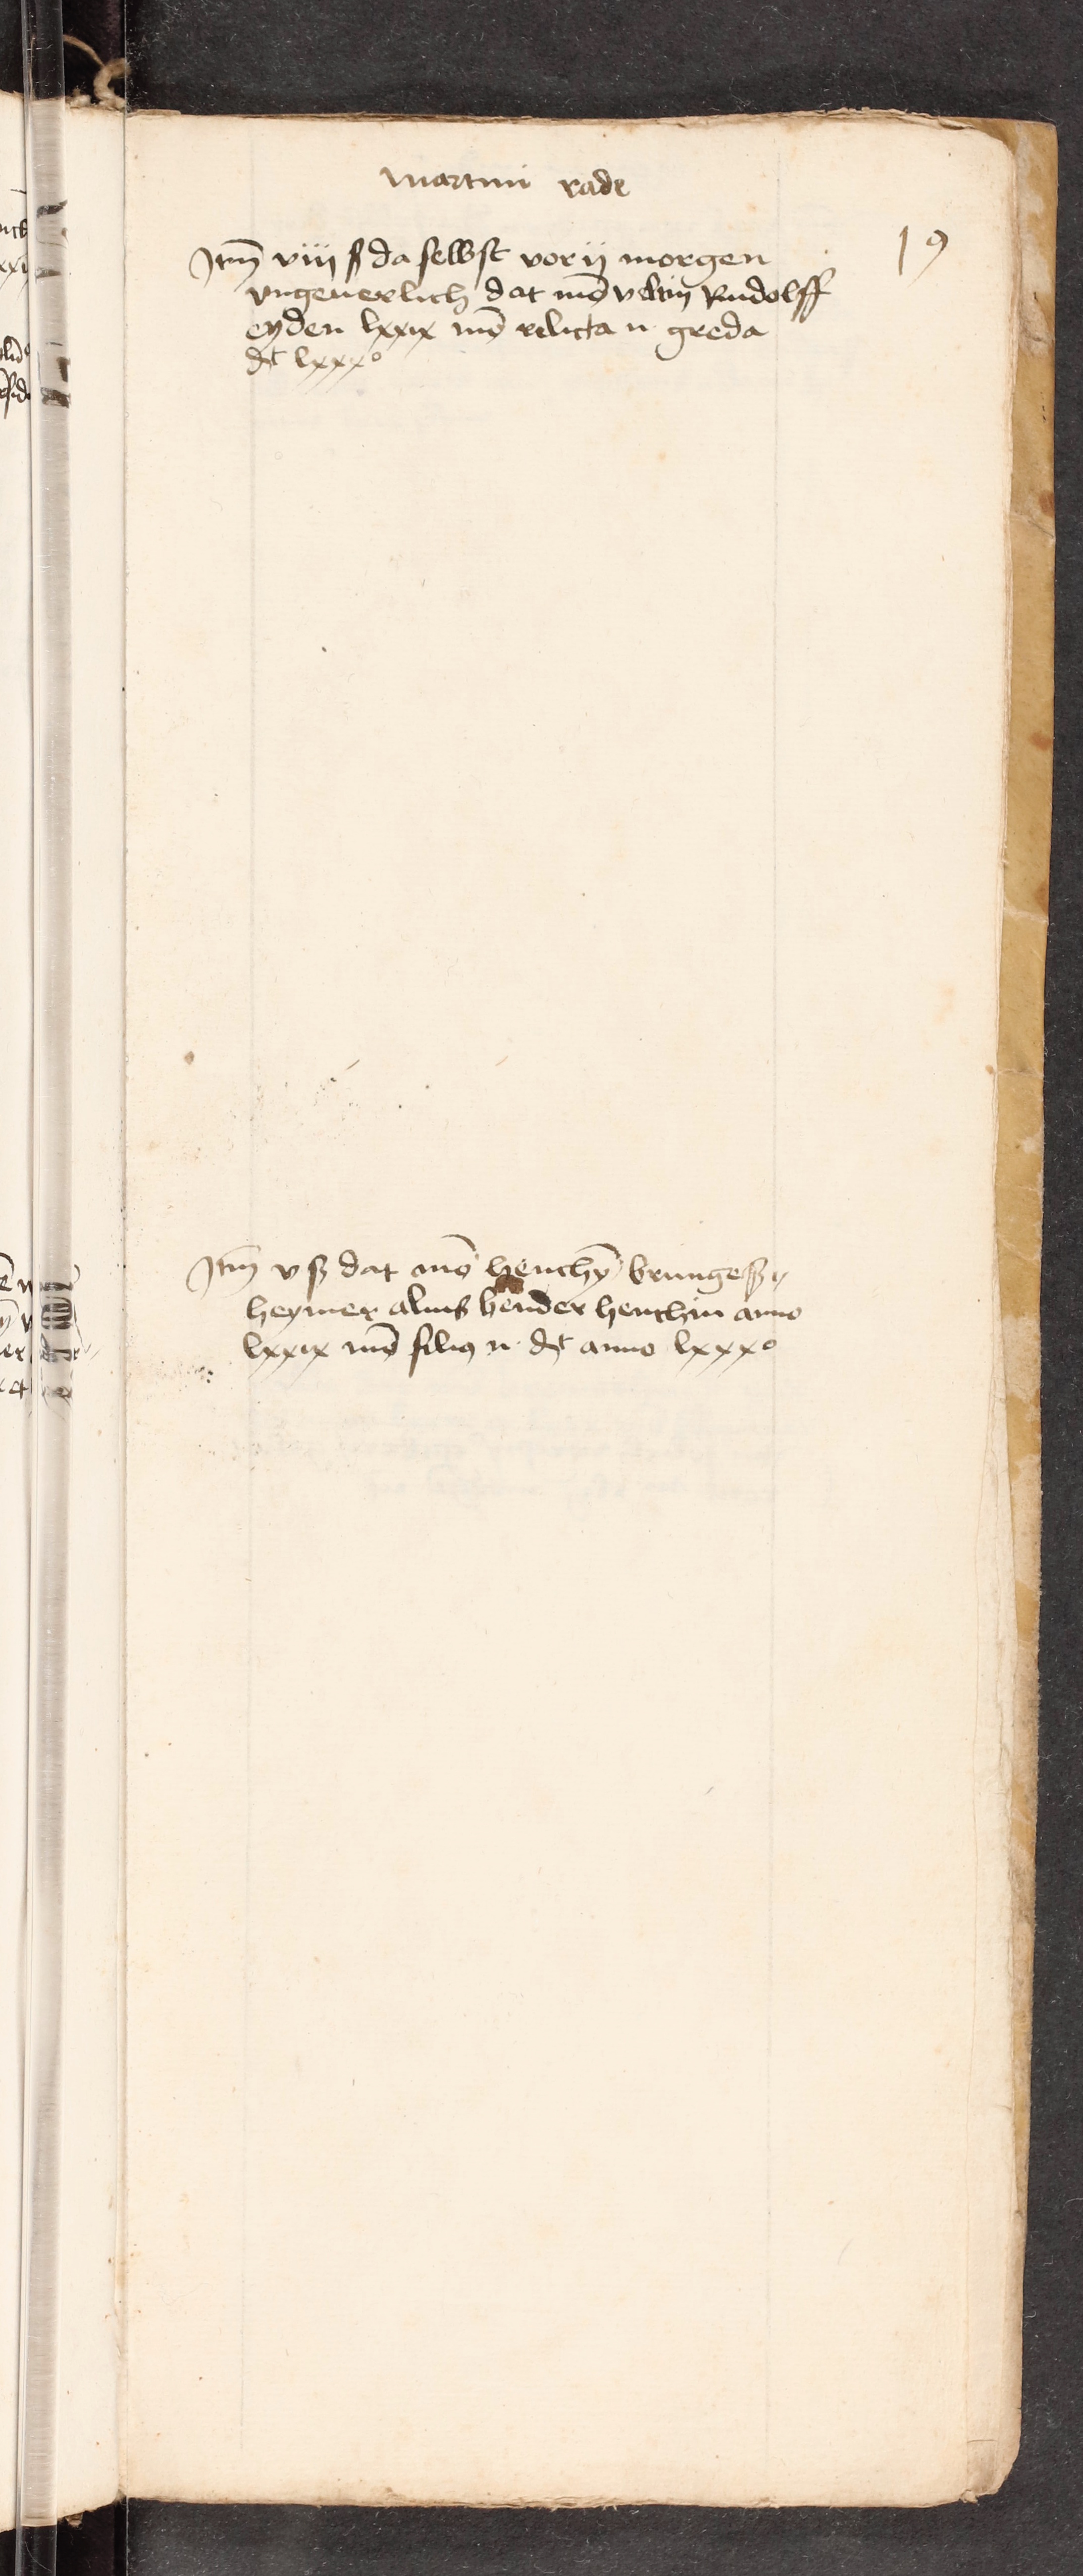 Martini rade
19
Jtem viii ß da selbst vor ii morgen
vngeuerlich dat mo veltin Rudolff
eyden lxxix mo relicta n greda
dt lxxxo
Jtem v ß dat mo henchyn brungeß
heymer alius bender henchin anno
lxxix mo filius n dt anno lxxxo